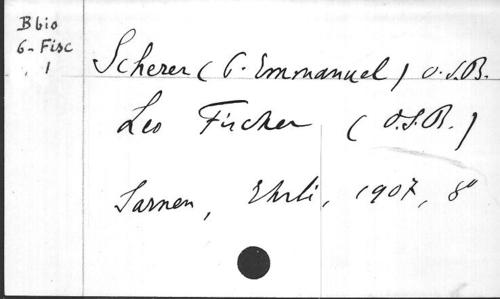 Bbio
6-Fisc
1
Scherer (P. Emmanuel) O.S.B.
Leo Fischer (O.S.B.)
Sarnen, Ehrli, 1907, 8°